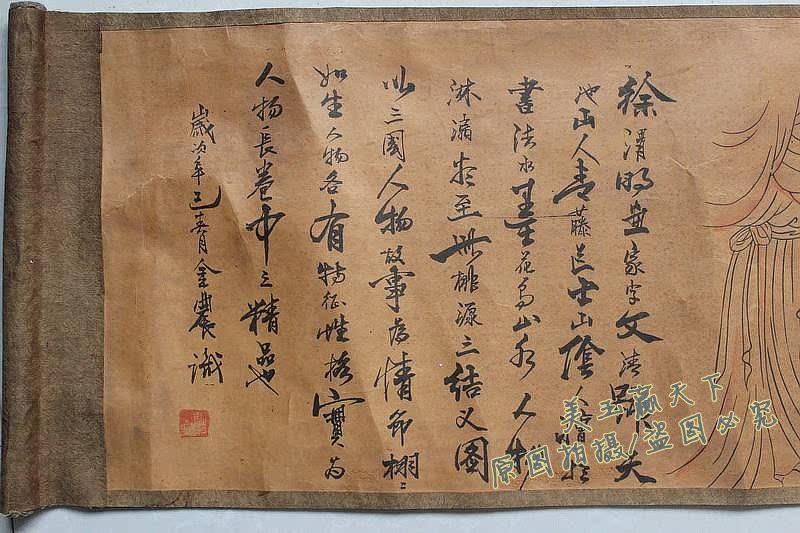 徐渭明画家字文清号天
池山人青藤道士山阴人精于
書法水墨花鸟山水人物
淋漓尽至此桃源三结义图
以三國人物故事为情节栩栩
如生人物各有特征性格實为
人物長卷中之精品也
歲次年己春月金農識
美玉瀛天下
原图拍摄/盗图必究